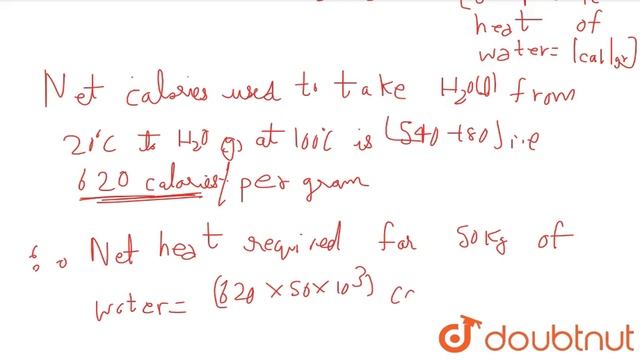 heat of
water = 1cal/gr]
Net calories used to take H2O(l) from
20°C to H2O g) at 100°C is (540+80) i.e
620 calories/ per gram
∴ Net heat required for 50Kg of
water = (620 × 50 × 10³) c
doubtnut